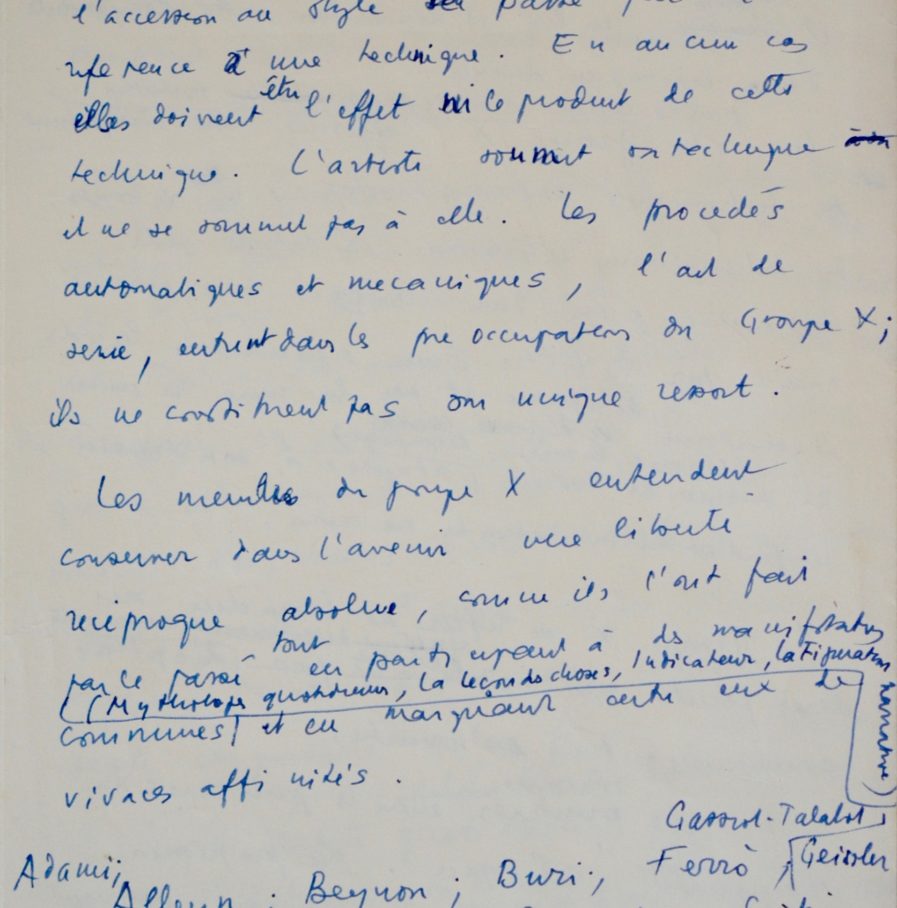 l'accession au style
reference à une technique. En aucun cas
elles doivent être l'effet ni le produit de cette
technique. L'artiste soumet sa technique
il ne se soumet pas à elle. Les procedés
automatiques et mecaniques, l'art de
serie, entrent dans les preoccupations du Groupe X;
ils ne constituent pas son unique ressort.
Les membres du groupe X entendent
conserver dans l'avenir une liberté
reciproque absolue, comme ils l'ont fait
par le passé tout en participant à ds manifestations
(Mythologies quotidiennes, La leçon ds choses, Indicateur, la Figuration narrative)
communes et en marquant entre eux de
vivaces affinités.
Gassiot-Talabot,
Adami; Alleyn; Beynon; Buri; Ferrò; Geissler